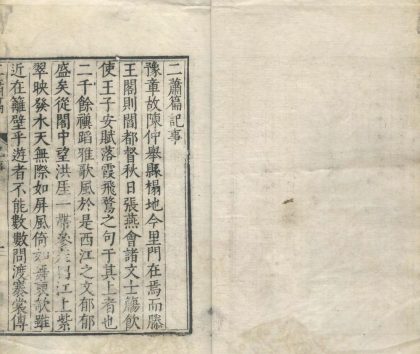 二蕭篇記事
豫章故陳仲舉縣榻地今里門在焉而滕
王閣則閻都督秋日張燕會諸文士觴飲
使王子安賦落霞飛鶩之句于其上者也
二千餘禩蹈雅歌風於是西江之文郁郁
盛矣從閣中望洪厓一帶參差江上紫
翠映發水天無際如屏風倚如舞 歌雖
近在籬壁乎遊者不能數數問渡褰裳傳